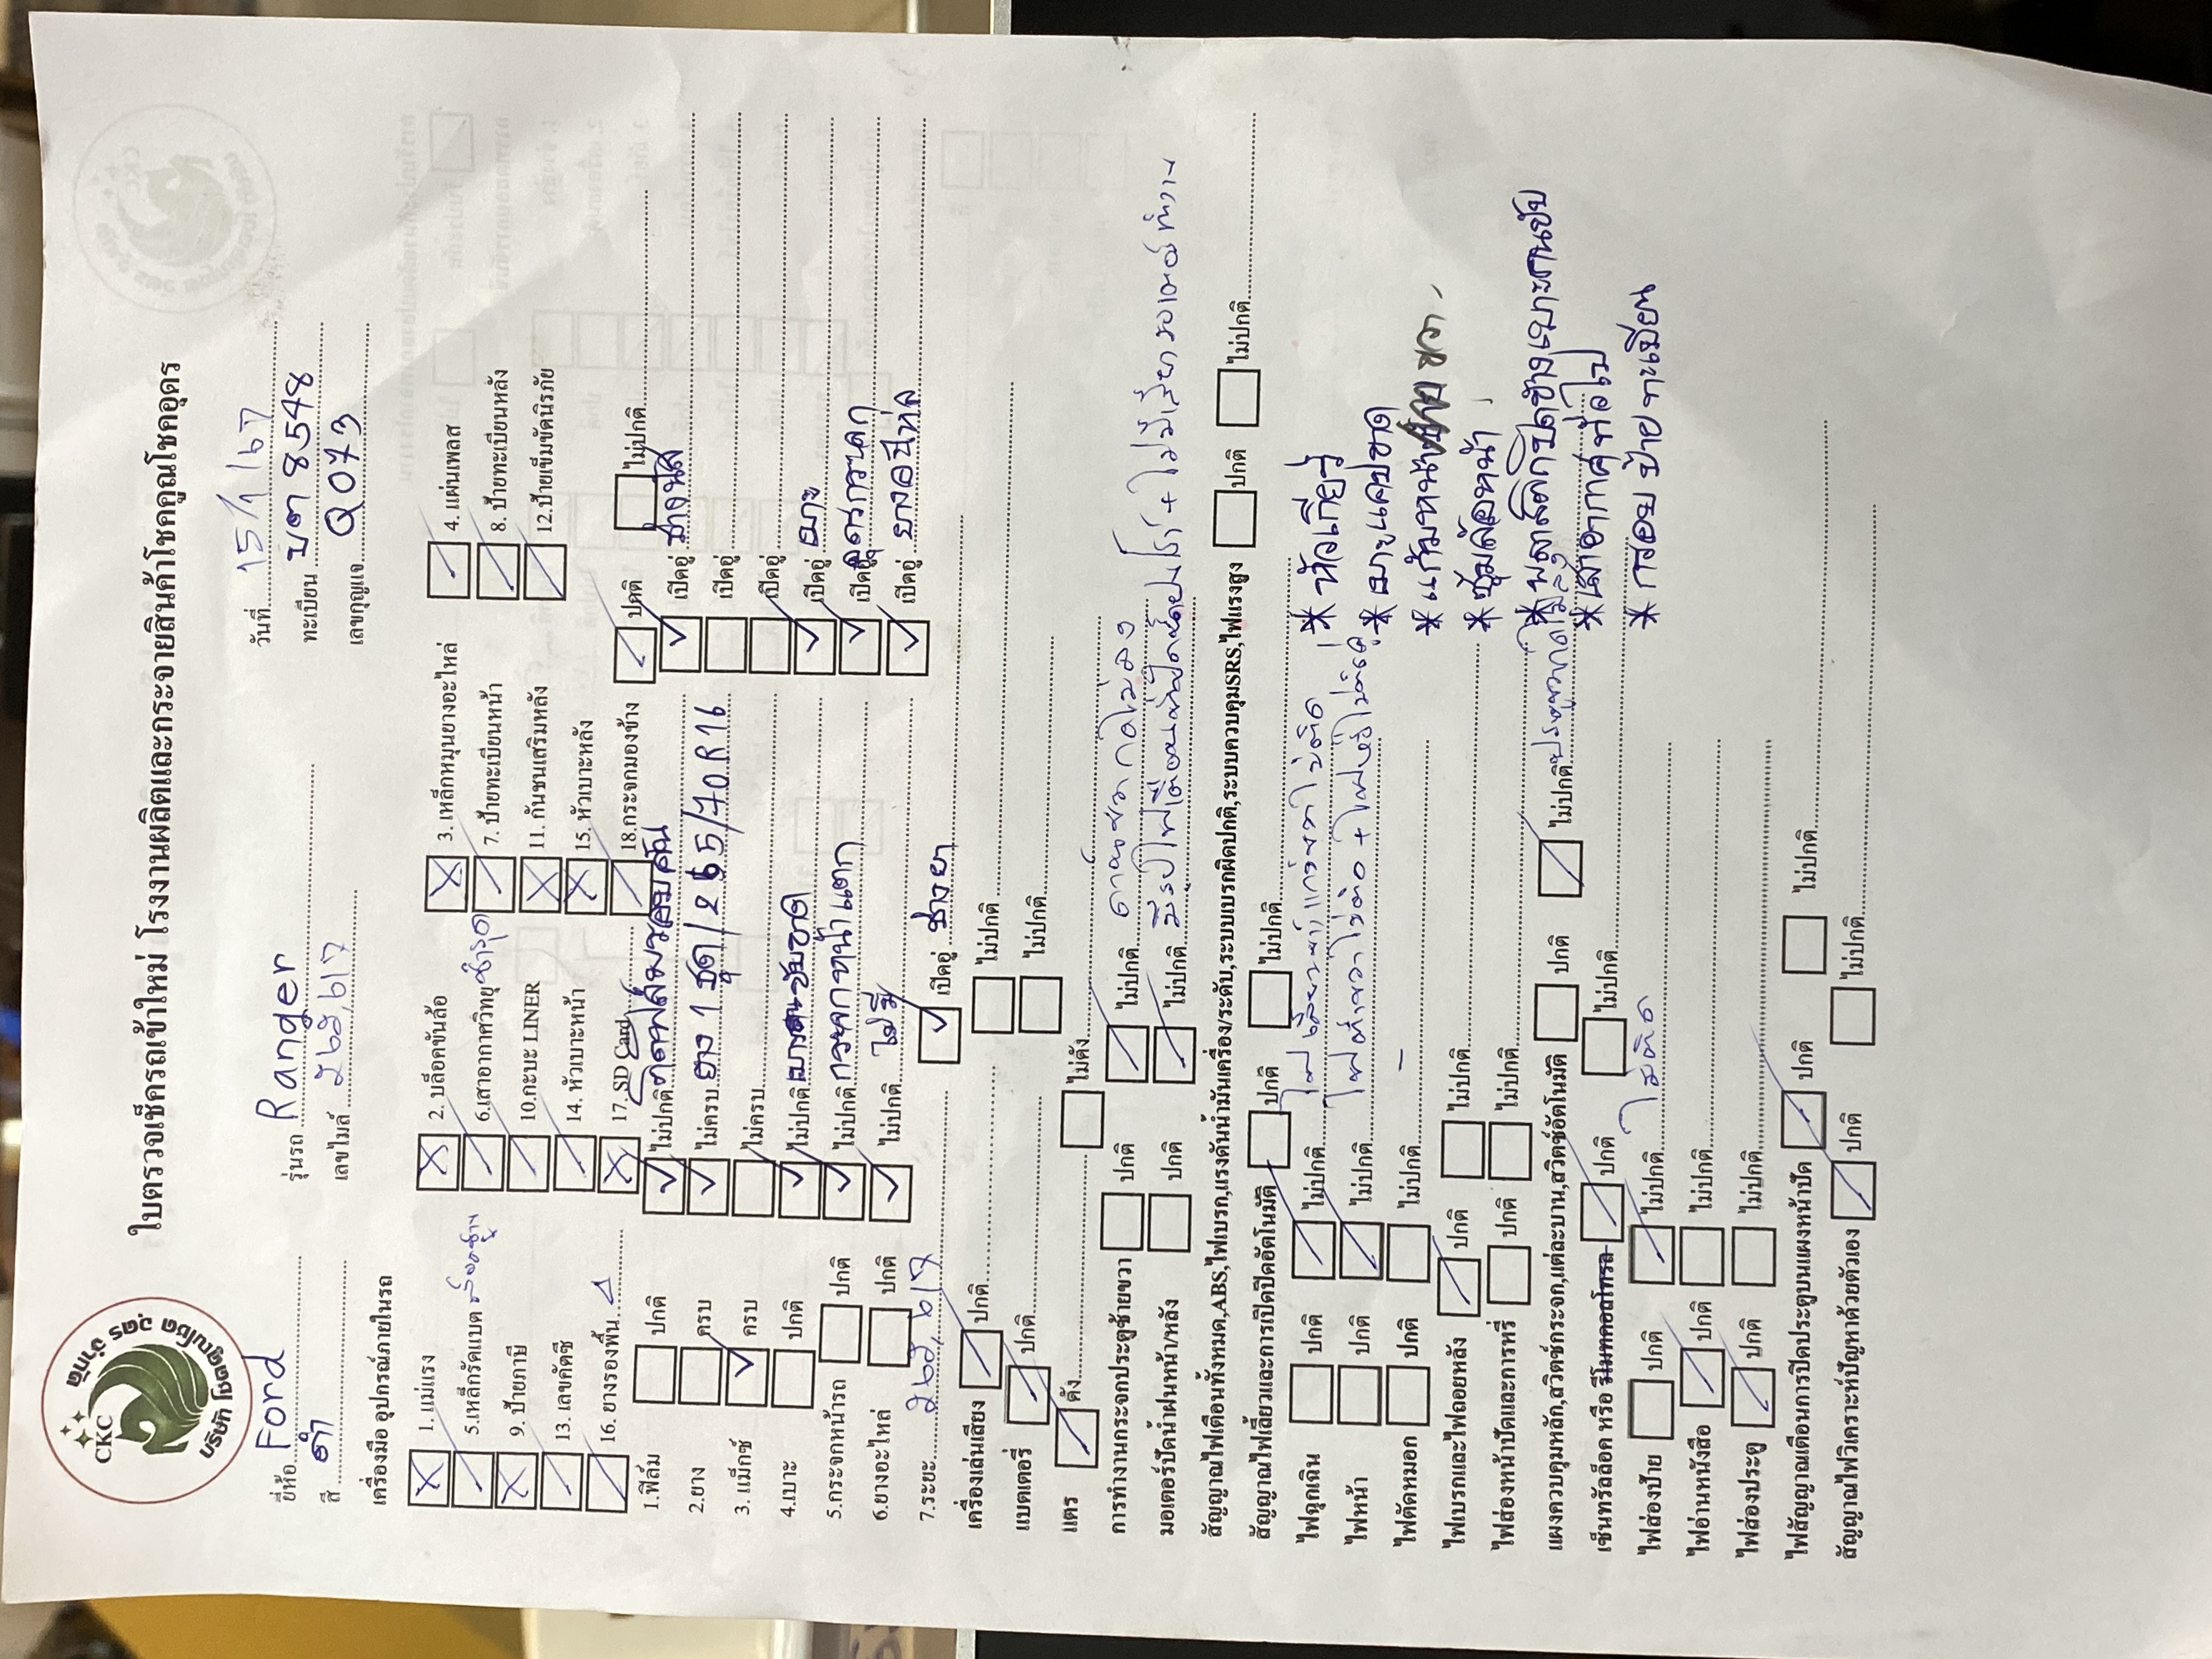 CKC
บริษัท โชคคูณโชค อุดร จำกัด
ใบตรวจเช็ครถเข้าใหม่ โรงงานผลิตและกระจายสินค้าโชคคูณโชคอุดร
ยี่ห้อ Ford รุ่นรถ Ranger วันที่ 15/1/67
สี ดำ เลขไมล์ 268,617 ทะเบียน บต 8548
เลขกุญแจ Q073
เครื่องมือ อุปกรณ์ภายในรถ
1. แม่แรง 2. บล็อคขันล้อ 3. เหล็กหมุนยางอะไหล่ 4. แผ่นเพลส
5.เหล็กรัดแบต 6.เสาอากาศวิทยุ ชำรุด 7. ป้ายทะเบียนหน้า 8. ป้ายทะเบียนหลัง
9. ป้ายภาษี 10.กะบะ LINER 11. กันชนเสริมหลัง 12.ป้ายเข็มขัดนิรภัย
13. เลขคัตซี 14. หัวเบาะหน้า 15. หัวเบาะหลัง
16. ยางรองพื้น 4 17. SD Card 18.กระจกมองข้าง ปกติ ไม่ปกติ
1.ฟิล์ม ปกติ ไม่ปกติ เบิคอยู่ ช่างนัส
2.ยาง ครบ ไม่ครบ ยาง 1 ชุด / 265/70R16 เบิคอยู่
3. แม็กซ์ ครบ ไม่ครบ เบิคอยู่
4.เบาะ ปกติ ไม่ปกติ เบิคอยู่ เบาะ
5.กระจกหน้ารถ ปกติ ไม่ปกติ กระจกหน้าแตก เบิคอยู่
6.ยางอะไหล่ ปกติ ไม่ปกติ ไม่มี เบิคอยู่ ยางอะไหล่
7.ระยะ 268,617 เบิคอยู่ ช่างยา
เครื่องเล่นเสียง ปกติ ไม่ปกติ
แบตเตอรี่ ปกติ ไม่ปกติ
แตร ดัง ไม่ดัง
การทำงานกระจกประตูซ้ายขวา ปกติ ไม่ปกติ
มอเตอร์ปัดน้ำฝนหน้า/หลัง ปกติ ไม่ปกติ
สัญญาณไฟเตือนทั้งหมด,ABS,ไฟเบรก,แรงดันน้ำมันเครื่อง/ระดับ,ระบบเบรกผิดปกติ,ระบบควบคุมSRS,ไฟแรงสูง ปกติ ไม่ปกติ
สัญญาณไฟเลี้ยวและการเปิดปิดอัตโนมัติ ปกติ ไม่ปกติ
ไฟฉุกเฉิน ปกติ ไม่ปกติ * หัวเกียร์
ไฟหน้า ปกติ ไม่ปกติ * เบาะแคปขาด
ไฟตัดหมอก ปกติ ไม่ปกติ - * แก้มหน้า ขวา
ไฟเบรกและไฟถอยหลัง ปกติ ไม่ปกติ * ซุ้มล้อหน้า
ไฟส่องหน้าปัดและการหรี่ ปกติ ไม่ปกติ * พลาสติกปิดข้างเบาะคนขับ
แผงควบคุมหลัก,สวิตช์กระจก,แต่ละบาน,สวิตช์อัตโนมัติ ปกติ ไม่ปกติ * เสาอากาศหักไป
เซ็นทรัลล็อค หรือ รีโมทคอลโทรล ปกติ ไม่ปกติ * กรอบป้ายทะเบียน
ไฟส่องป้าย ปกติ ไม่ปกติ ไม่ติด
ไฟอ่านหนังสือ ปกติ ไม่ปกติ
ไฟส่องประตู ปกติ ไม่ปกติ
ไฟสัญญาณเตือนการปิดประตูบนแผงหน้าปัด ปกติ ไม่ปกติ
สัญญาณไฟวิเคราะห์ปัญหาด้วยตัวเอง ปกติ ไม่ปกติ